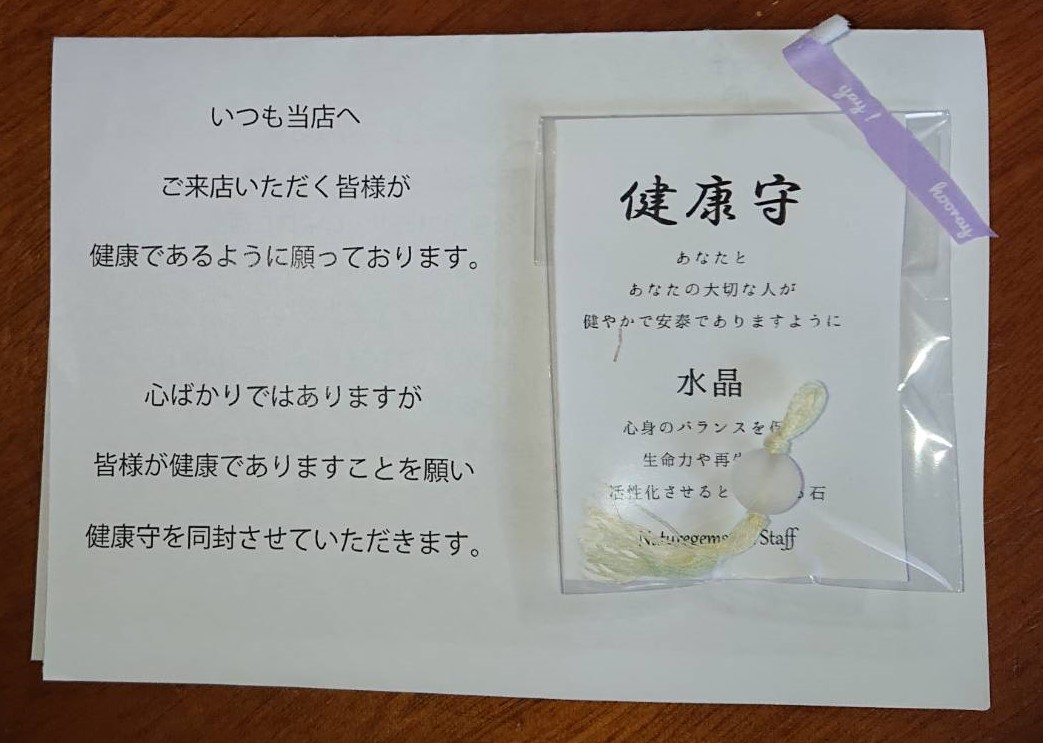 いつも当店へ
ご来店いただく皆様が
健康であるように願っております。
心ばかりではありますが
皆様が健康でありますことを願い
健康守を同封させていただきます。
yay!
hooray
健康守
あなたと
あなたの大切な人が
健やかで安泰でありますように
水晶
心身のバランスを
生命力や再
活性化させると
石
Staff